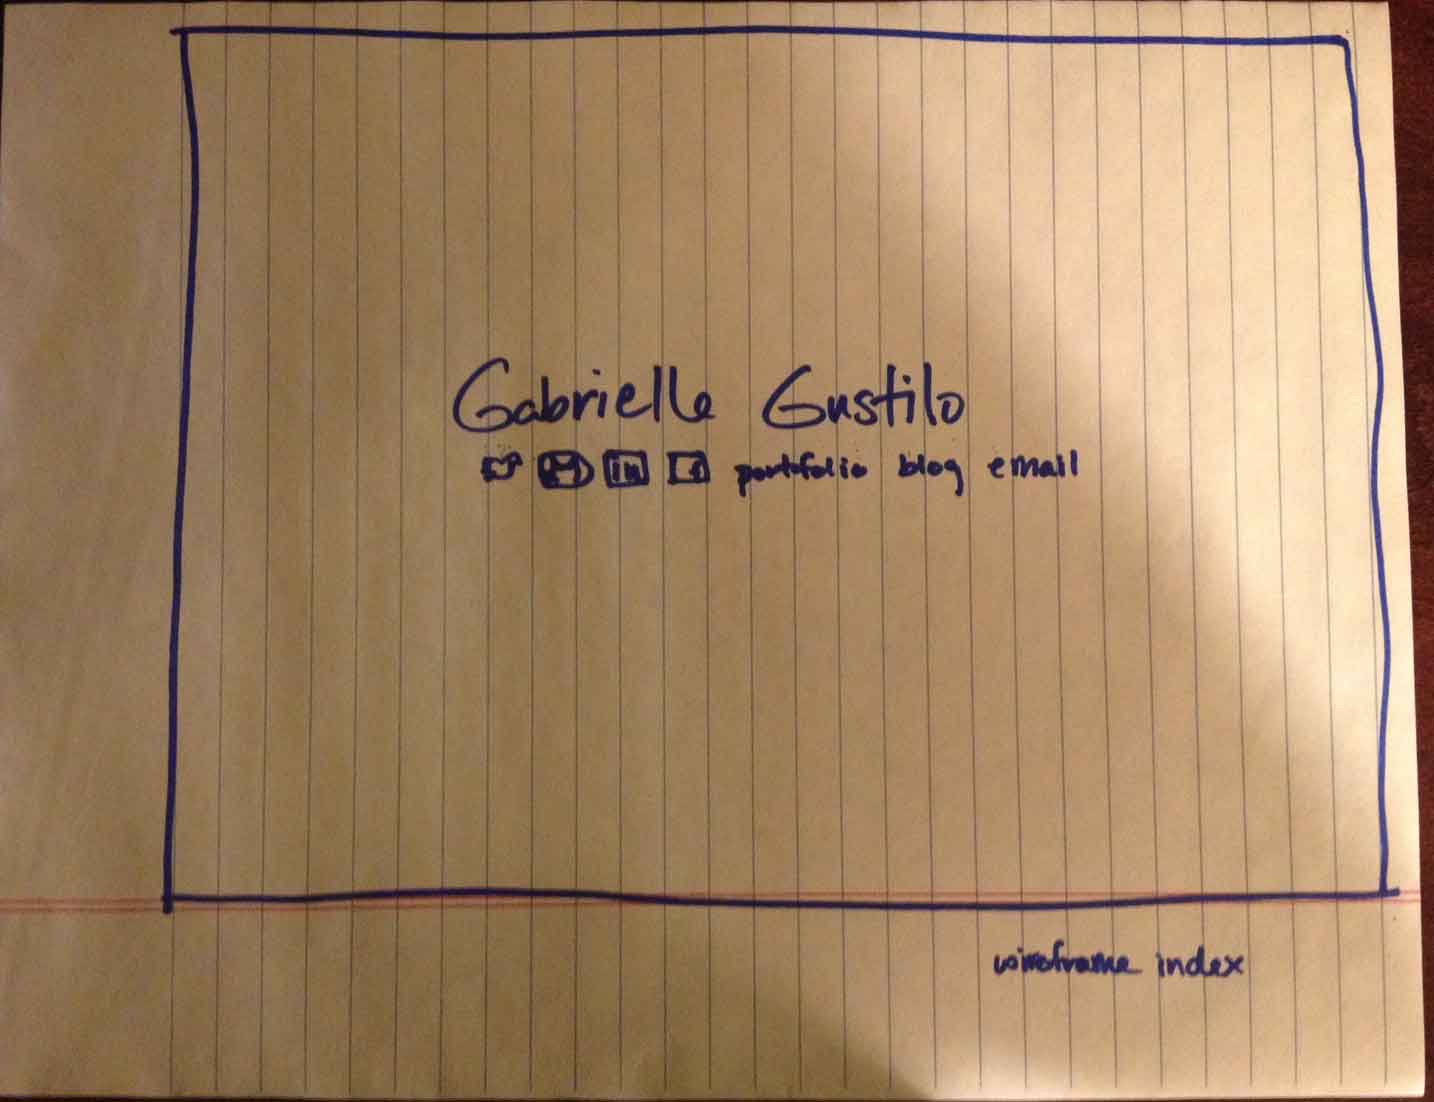 Gabrielle Gustilo
in f portofolio blog email
wireframe index